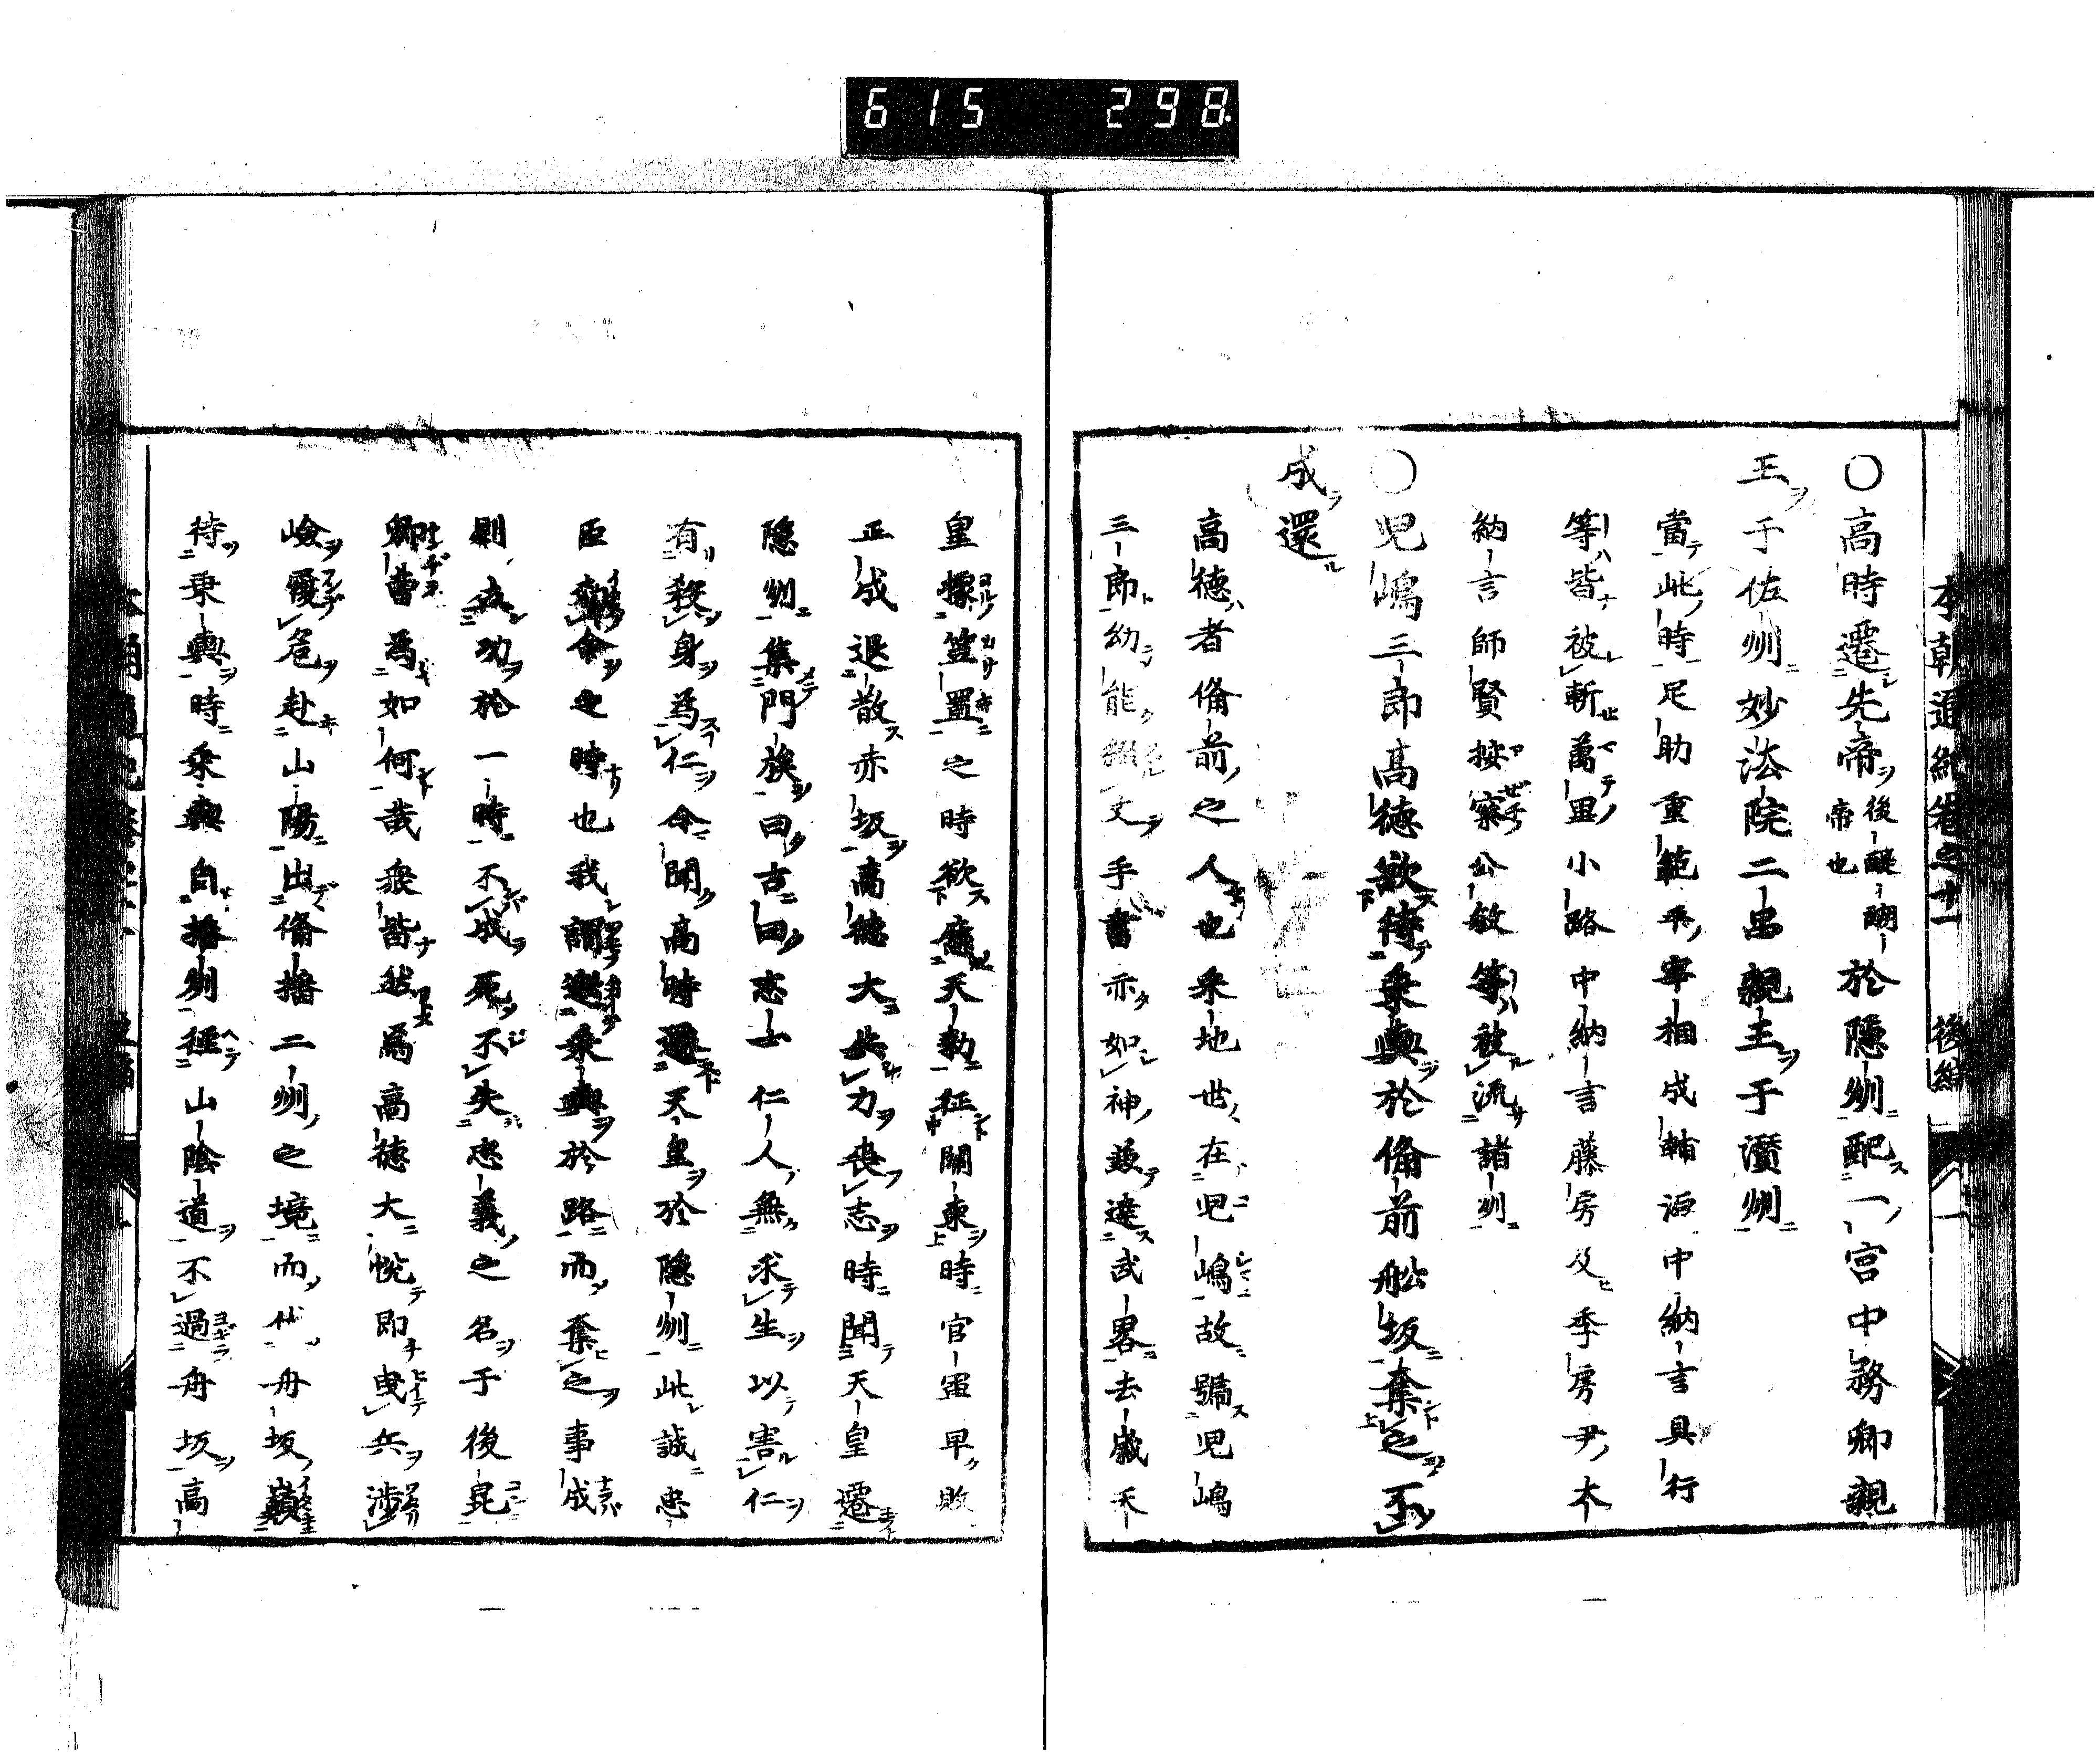 615 298
本朝通紀卷之十一 後編
〇高時遷先帝後醍醐帝也於隱州配一宮中務卿親
王于佐州妙法院二品親王于讚州
當此時足助重範平宰相成輔源中納言具行
等皆被斬萬里小路中納言藤房及季房尹大
納言師賢按察公敏等被流諸州
〇児嶋三郎高徳欲待乗輿於俻前舩坂奪之不
成還
高徳者俻前之人也采地世在児嶋故號児嶋
三郎幼能綴文手書亦如神兼達武畧去歳天
皇據笠置之時欲應天勅征關東時官軍早敗
正成退散赤坂高徳大失力喪志時聞天皇遷
隱州集門族曰古曰志士仁人無求生以害仁
有殺身為仁今聞高時遷天皇於隱州此誠忠
臣致命之時也我謂邀乗輿於路而奪之事成
則立功於一時不成死不失忠義之名于後昆
卿曹為如何哉衆皆然焉高徳大悦即曳兵渉
嶮履危赴山陽出俻播二州之境而伏舟坂巔
待乗輿時乗輿自播州徑山陰道不過舟坂高